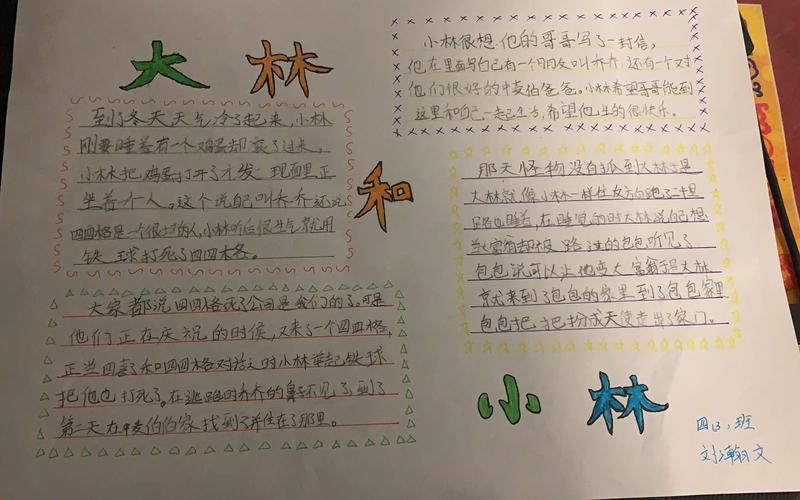 大林
和
小林
到了冬天天气冷了起来,小林
刚要睡着有一个鸡蛋却滚了过来,
小林把鸡蛋打开了才发现里面正
坐着个人。这个说自己叫乔乔还说
四四格是一个很坏的人,小林听后很生气就用
铁球打死了四四格。
大家都说四四格死了公司是我们的了可是
他们正在庆祝的时候,又来了一个四四格,
正当四喜子和四四格对话时小林举起铁球
把他也打死了。在逃跑时乔乔的鼻子不见了,到了
第二天在中麦伯伯家找到了并住在了那里。
小林很想他的哥哥写了一封信,
他在里面写自己有一个朋友叫乔乔,还有一个对
他们很好的中麦伯爸爸。小林希望哥哥能到
这里和自己一起生活,希望他生的很快乐。
那天怪物没有抓到大林于是
大林就像小林一样往反方向跑了二十里
路也睡着,在睡觉的时大林说自己想
当富翁却被路过的包包听见了
包包说可以让他变大富翁于是大林
就来到了包包的家里到了包包家里
包包把把扮成天使走出了家门。
四(3)班
刘瀚文